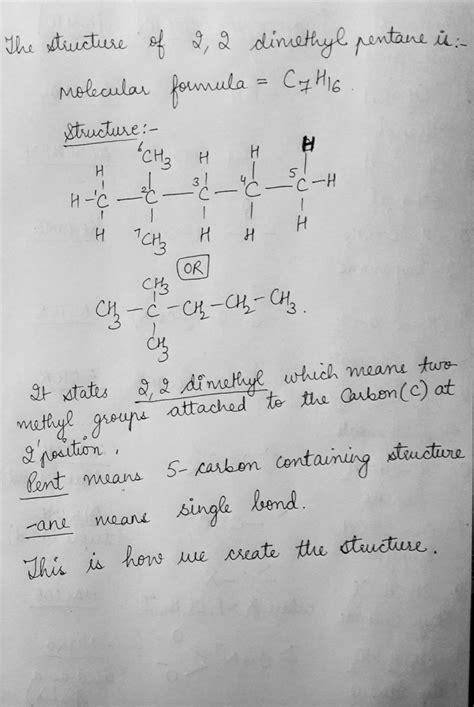 The structure of 2,2 dimethyl pentane is:-
Molecular formula = C7H16.
Structure:-
6CH3 H H H
H
H-1C-2C-3C-4C-5C-H
H 7CH3 H H H
OR
CH3
CH3-C-CH2-CH2-CH3.
CH3
It states 2,2 dimethyl which means two
methyl groups attached to the Carbon(C) at
2' position.
Pent means 5-carbon containing structure
-ane means single bond.
This is how we create the structure.